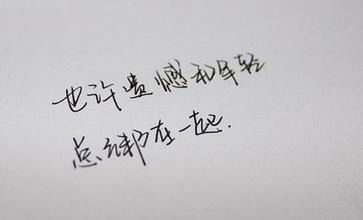 也许遗憾和年轻
总是绑在一起.